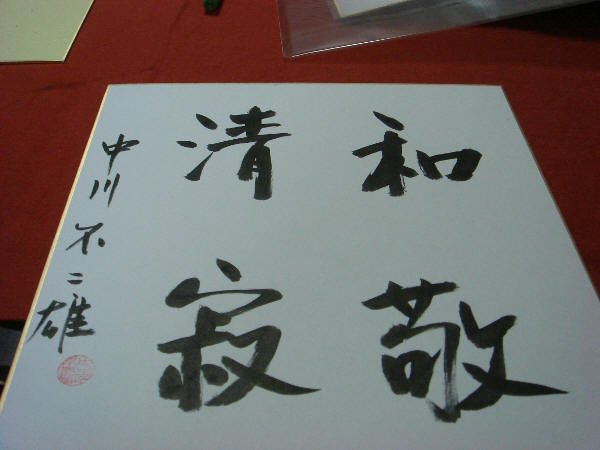 和敬
清寂
中川不二雄